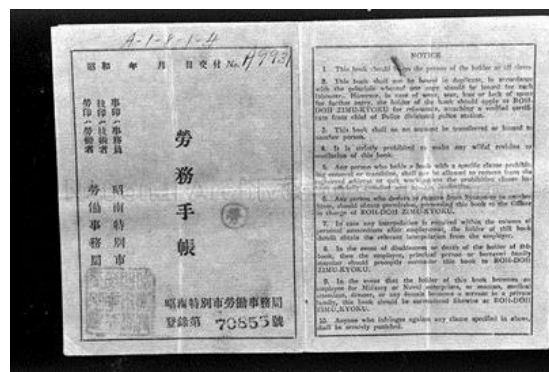 A-1-8-1-4
昭和 年 月 日交付 No. A9931
事印(事務員
技印(技術者
勞印(勞働者
勞務手帳
昭南特別市
勞働事務局
勞
昭南特別市勞働事務局
登錄第 70855 號
NOTICE
1. This book should be on the person of the holder at all times.
2. This book shall not be issued in duplicate, in accordance
with the principle whereof one copy should be issued for each
labourer. However, in case of wear, tear, loss or lack of space
for further entry, the holder of the book should apply at ROH-
DOH ZIMU-KYOKU for reissuance, attaching a verified certifi-
cate from chief of Police divisional station.
3. This book shall on no account be transferred or loaned to
another person.
4. It is strictly prohibited to make any wilful revision or
mutilation of this book.
5. Any person who holds a book with a specific clause prohibit-
ing removal or transfer, shall not be allowed to remove from the
6. Any person who desires to remove from Syonan to another
in charge of ROH-DOH ZIMU-KYOKU.
7. In case any interpolation is required within the column of
personal connections after employment, the holder of this book
should obtain the relevant interpolation from the employer.
8. In the event of disablement or death of the holder of this
book, then the employer, principal person or bereaved family
member should promptly surrender this book to ROH-DOH
ZIMU-KYOKU.
9. In the event that the holder of this book becomes an
employee for Military or Naval enterprises, or
family, this book should be surrendered likewise to ROH-DOH
ZIMU-KYOKU.
10. Anyone who infringes against any clause specified in above,
shall be severely punished.